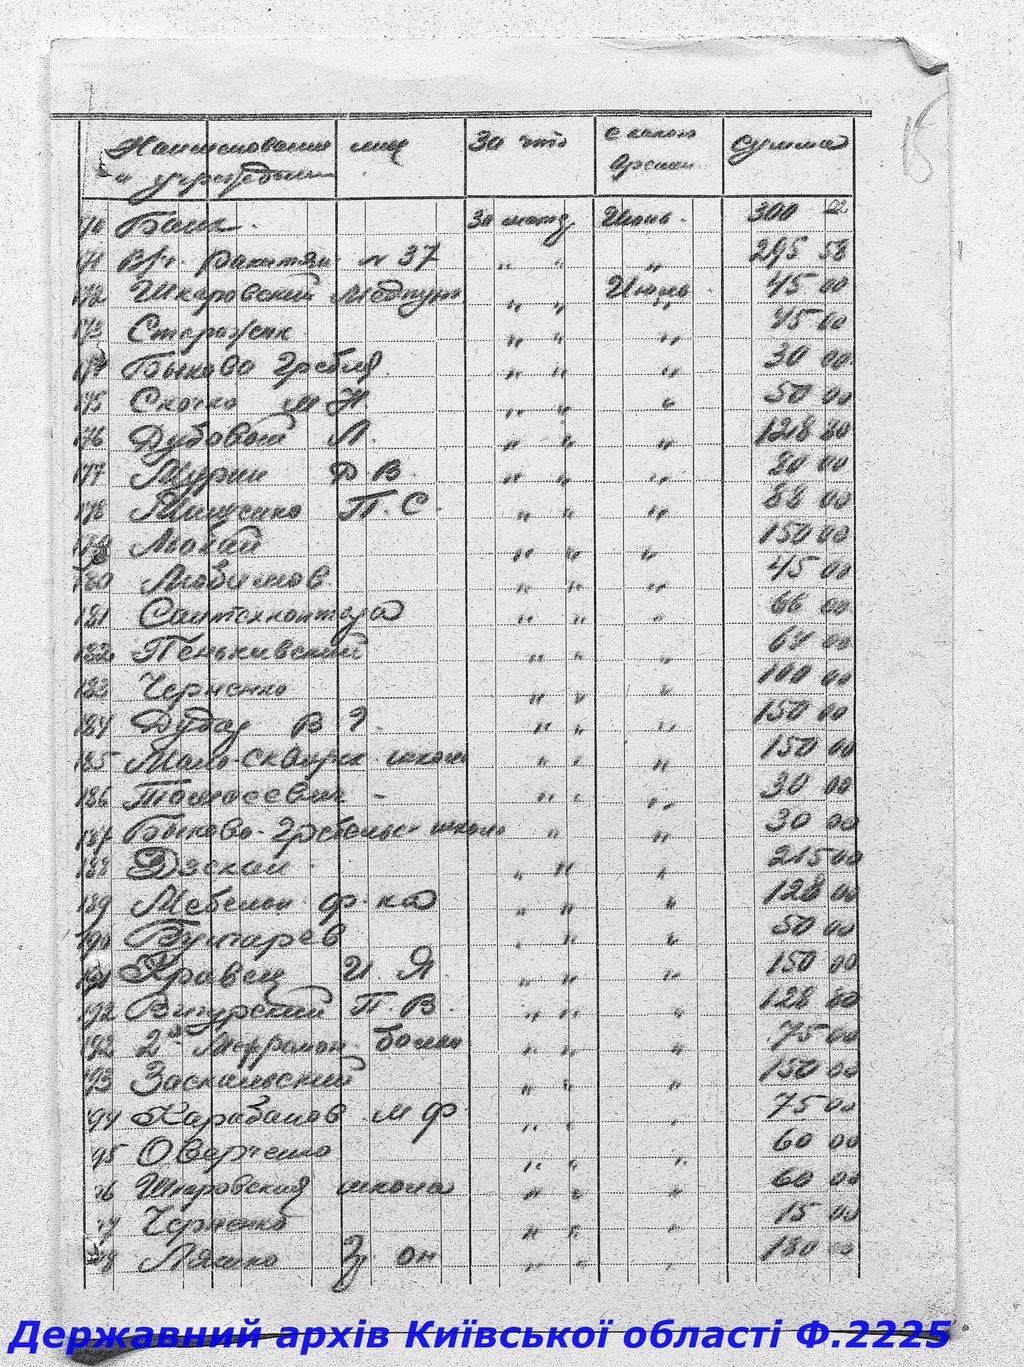 15
Наименование лиц За что С какого Сумма
и учреждений времени
170 Банк. За Июнь. 300 22
171 " " " 295 58
172 Шкаровский Медпункт " " Июнь 45 00
173 " " " 45 00
174 Быково Гребля " " " 30 00
175 Скочко М Н " " " 50 00
176 Дубовой Л. " " " 128 80
177 Мурин В. " " " 20 00
178 Мищенко П. С. " " " 88 00
179 " " " 150 00
180 Любимов " " " 45 00
181 Сантехконтора " " " 66 00
182 Пеньковский " " " 64 00
183 Черненко " " " 100 00
184 Дубас В " " " 150 00
185 Мало-сквирск школа " " " 150 00
186 Томасевич - " " " 30 00
187 Быково-Гребельс школа " " 30 00
188 " " " 215 00
189 Мебельн. ф-ка " " " 128 00
190 Бунтарев " " " 50 00
191 Кравец И. Я. " " " 150 00
192 П. В. " " " 128 80
192 2я " " " 75 00
193 Заскальский " " " 150 00
194 Карабанов М Ф. " " " 75 00
95 Оверченко " " " 60 00
96 Шкаровская школа " " " 60 00
Черненко " " " 15 00
98 Ляшко " " " 180 00
Державний архів Київської області Ф.2225